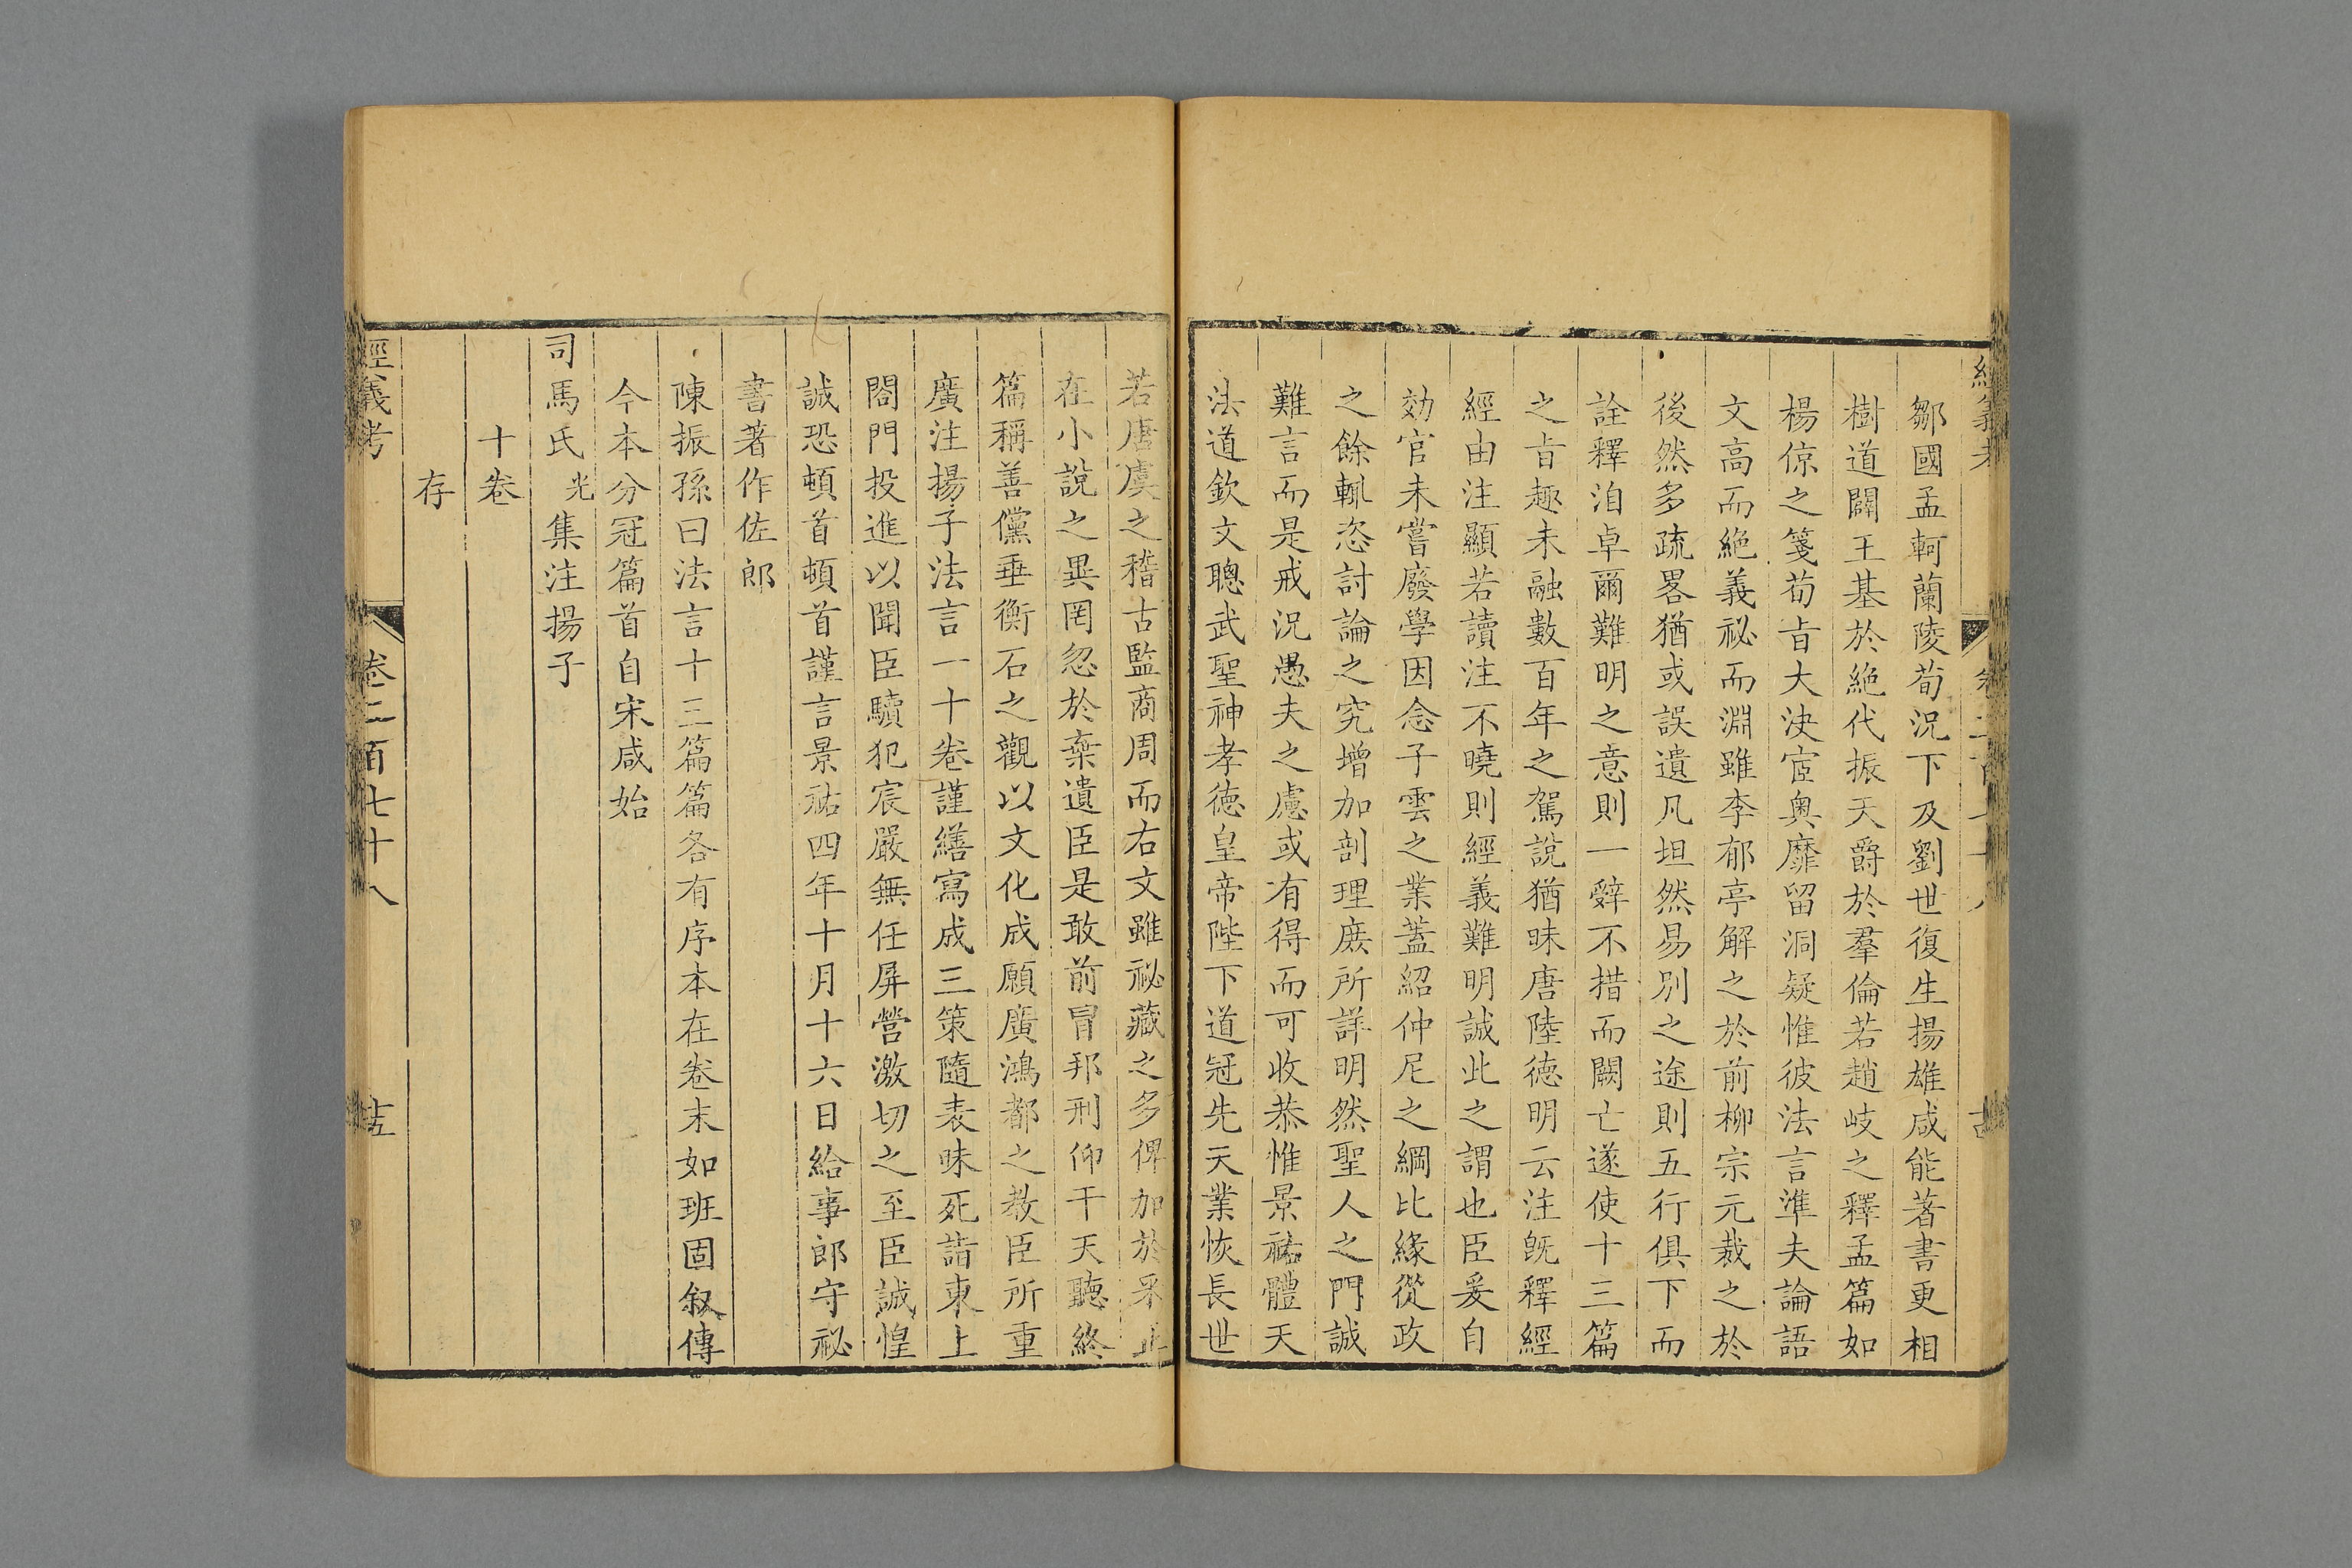 鄒國孟軻蘭陵荀況下及劉世復生揚雄咸能著書更相
樹道闢王基於絶代振天爵於羣倫若趙岐之釋孟篇如
楊倞之箋荀㫖大決宧奧靡留洞疑惟彼法言準夫論語
文高而絶義祕而淵雖李郁亭解之於前柳宗元裁之於
後然多疏畧猶或誤遺凡坦然易别之途則五行俱下而
詮釋洎卓爾難明之意則一辤不措而闕亡遂使十三篇
之㫖趣未融數百年之駕說猶昧唐陸德明云注旣釋經
經由注顯若讀注不曉則經義難明誠此之謂也臣爰自
効官未嘗廢學因念子雲之業蓋紹仲尼之綱比緣從政
之餘輒恣討論之究增加剖理庶所詳明然聖人之門誠
難言而是戒況愚夫之慮或有得而可收恭惟景祐體天
法道欽文聰武聖神孝德皇帝陛下道冠先天業恢長世
若唐虞之稽古監商周而右文雖祕藏之多俾加於采止
在小說之異罔忽於棄遺臣是敢前冐邦刑仰干天聽終
篇稱善儻垂衡石之觀以文化成願廣鴻都之教臣所重
廣注揚子法言一十卷謹繕寫成三策隨表昧死詣東上
閤門投進以聞臣驥犯宸嚴無任屏營激切之至臣誠惶
誠恐頓首頓首謹言景祐四年十月十六日給事郎守祕
書著作佐郎
陳振孫曰法言十三篇篇各有序本在卷末如班固叙傳
今本分冠篇首自宋咸始
司馬氏光集注揚子
十卷
存
經義考 卷二百七十八